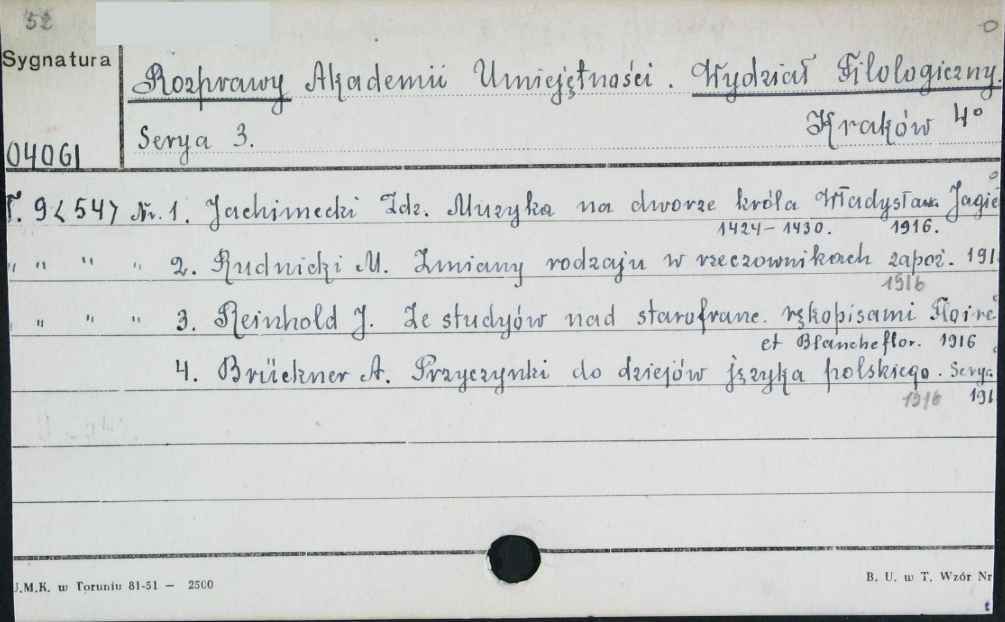 52
Sygnatura
Rozprawy Akademii Umiejętności. Wydział Filologiczny
Serya 3. Kraków 4°
04061
T. 9<54> Nr. 1. Jachimecki Zdz. Muzyka na dworze króla Władysław. Jagie
1424-1430. 1916.
" " " " 2. Rudnicki M. Zmiany rodzaju w rzeczownikach zapoż. 191
1916
" " " " 3. Reinhold J. Ze studyów nad starofranc. rękopisami Floire
et Blancheflor. 1916
4. Brückner A. Przyczynki do dziejów języka polskiego. Serya
1916 191
U.M.K. w Toruniu 81-51 — 2500
B. U. w T. Wzór Nr
t